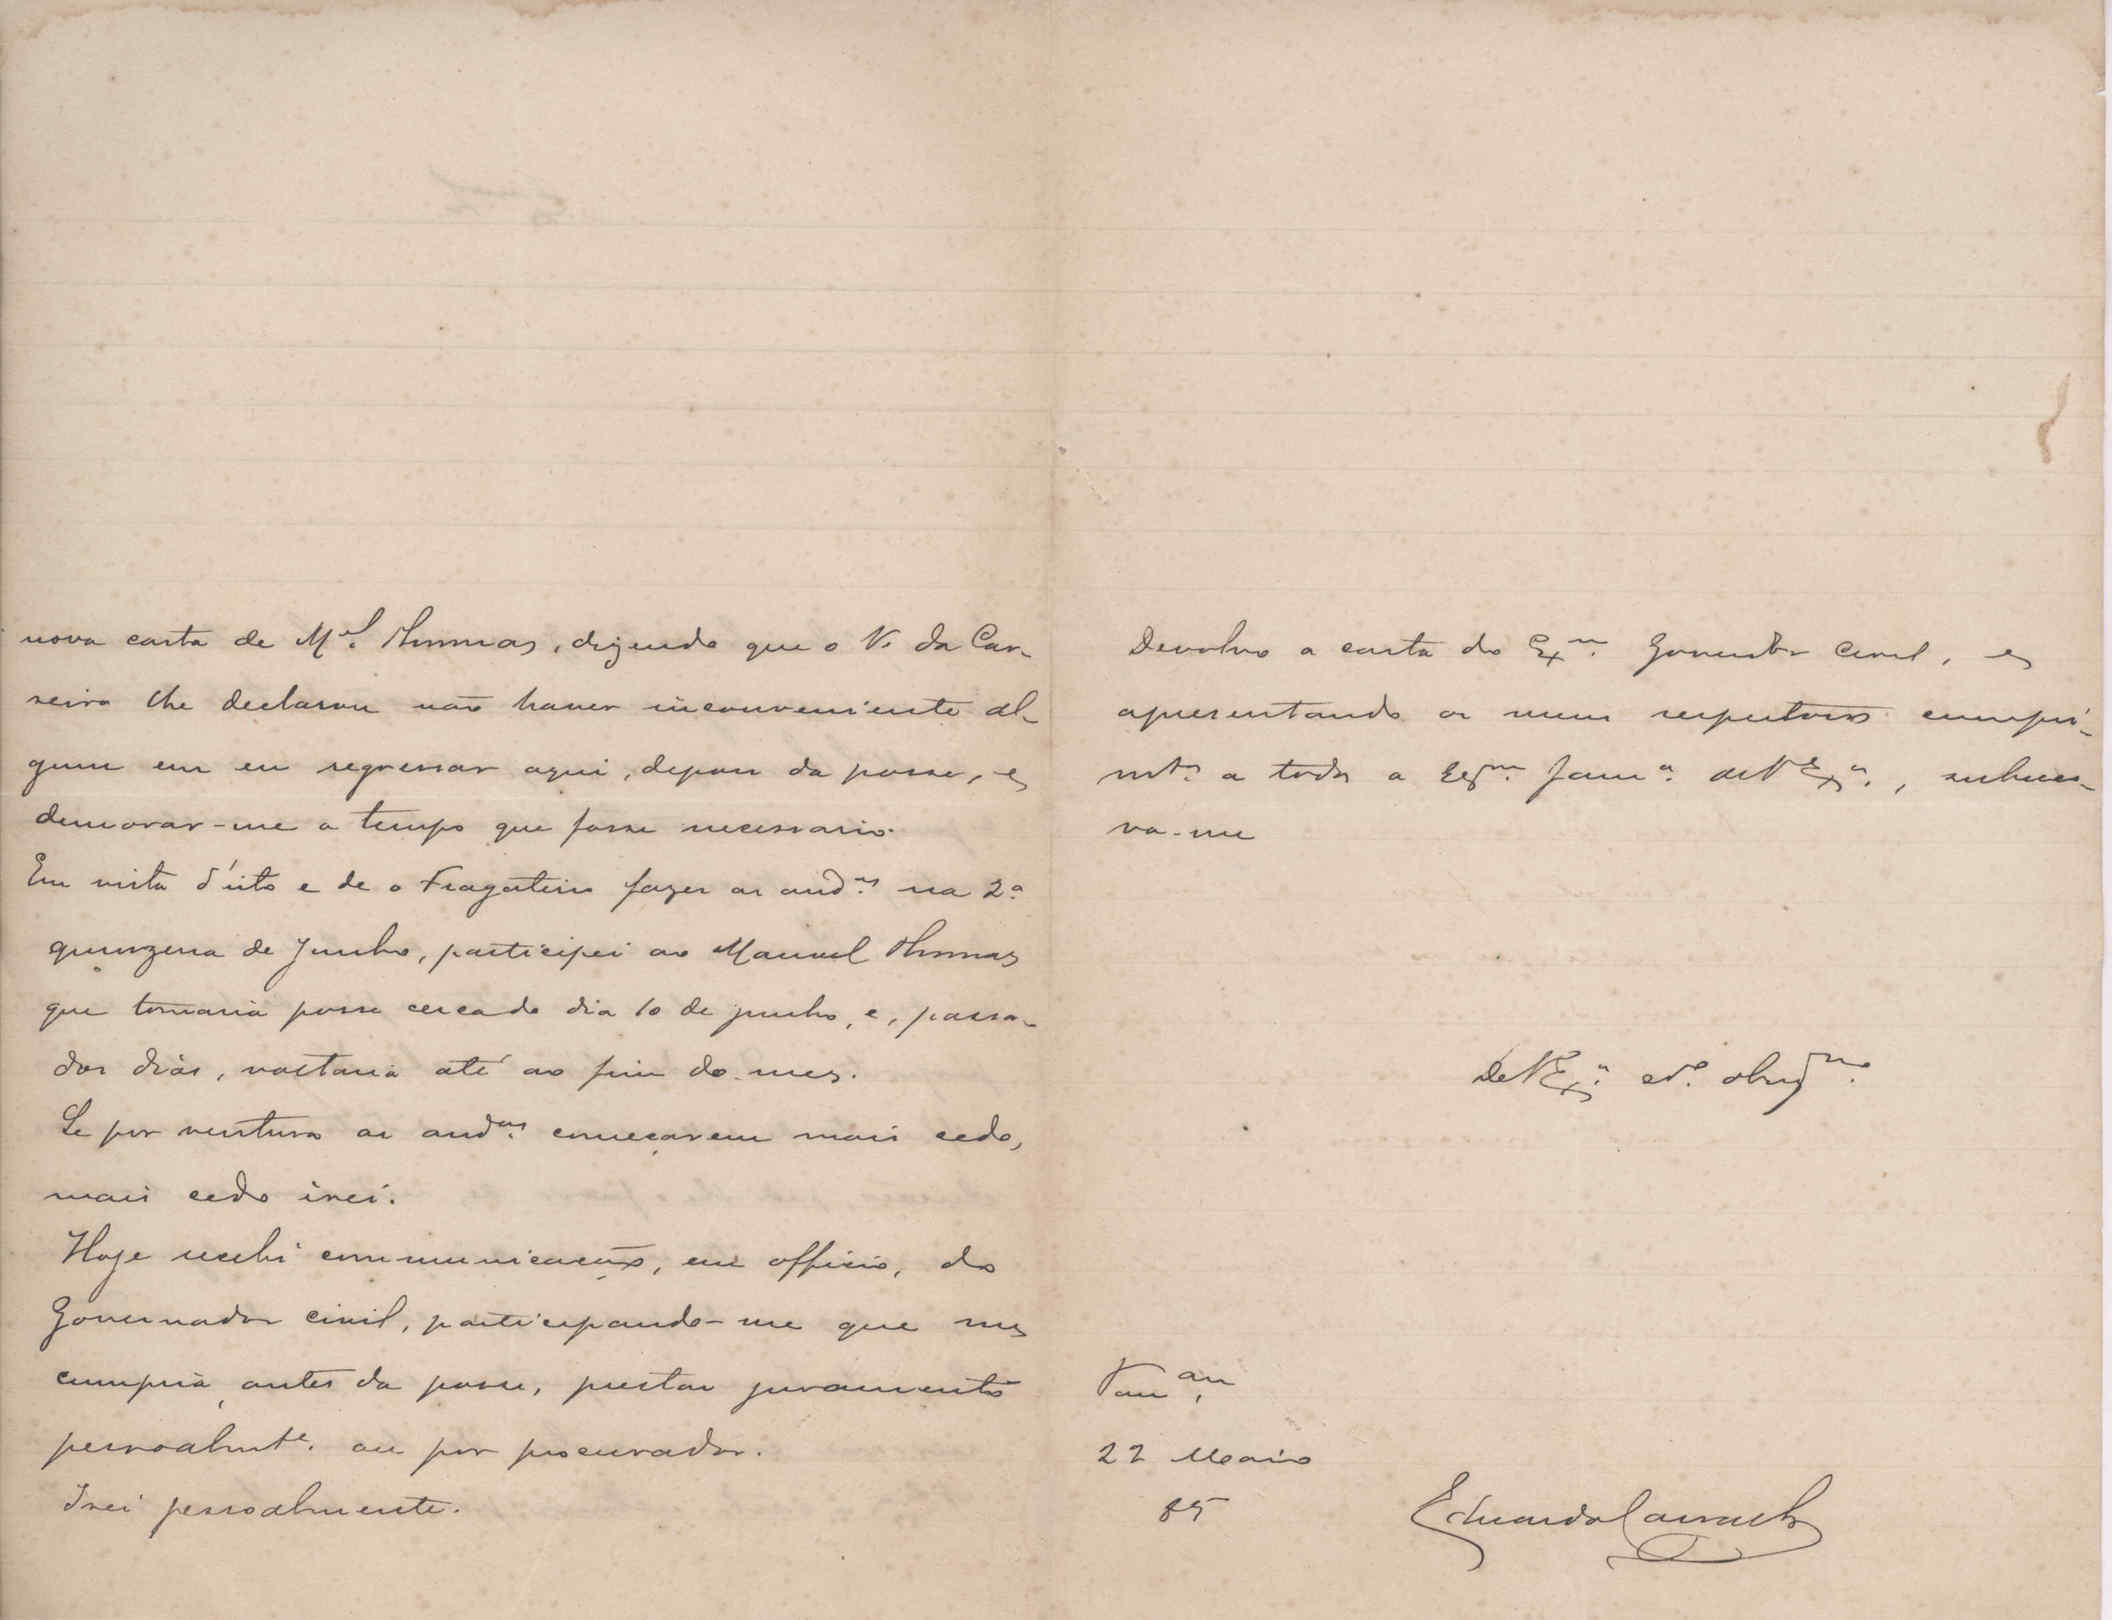 nova carta de M.el Thomas, dizendo que o V. da Car-
reira lhe declarou não haver inconveniente al-
gum em eu regressar aqui, depois da posse, e
demorar-me o tempo que fosse necessario.
Em vista d'isto e de o Fragateiro fazer as aud.as na 2.a
quinzena de Junho, participei ao Manuel Thomas
que tomaria posse cerca do dia 10 de junho, e, passa-
dos dias, voltaria até ao fim do mez.
Se por ventura as aud.as começarem mais cedo,
mais cedo irei.
Hoje recebi communicação, em officio, do
Governador civil, participando-me que me
cumpria, antes da posse, prestar juramento
pessoalmt.e ou por procurador.
Irei pessoalmente.
Devolvo a carta do Ex.mo Governador Civil, e
apresentando os meus respeitosos cumpri-
mt.os a toda a Ex.ma Fam.a de V. Ex.a, subscre-
vo-me
De V. Ex.a cr.o obrig.mo
22 Maio
85
Eduardo